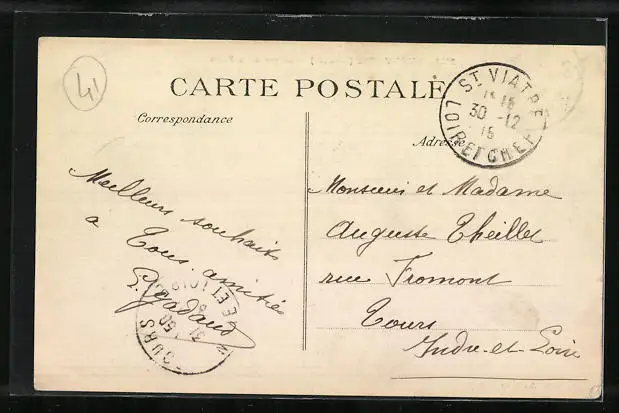 41
CARTE POSTALE
Correspondance
Adresse
ST VIATRE
30 -12
15
LOIR ET CHER
Meilleurs souhaits
a Tous. amitiés
Monsieur et Madame
Auguste Theillet
rue Fromont
Tours
Indre-et-Loire
TOURS